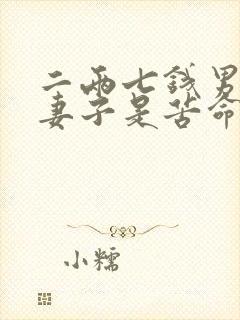 二两七钱男
妻子是苦命
小糯